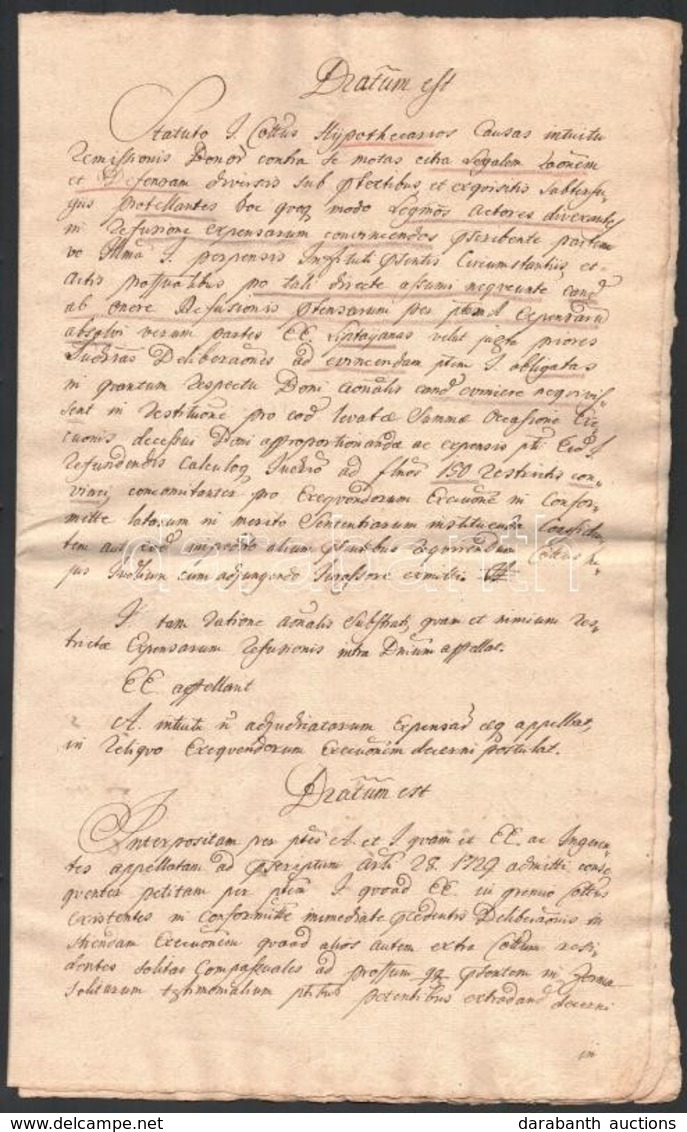 Dratum est
Statuto I. Cottus Hypothecarios Causas intuitu
remissionis Bonor contra se motas citra Legalem
et Defensam diversis sub ptextibus et exquisitis subterfu-
gijs protellantes hoc quoq modo Legmos Actores divexantes
in refusione expensarum convincendos pscribente partem
vo I. perpensis Instituti psentis Circumstantiis, et
Actis possualibus po tali directe assumi nequeunte, cond
ab onere Refusionis ptensarum per ptem A Expensaru
absolvi verum partes EE. Liptayanas velut juxta priores
Judrias Deliberaones ad evincendam ptem I obligatas
in quantum respectu Boni aonalis cond evincere nequivis-
sent in restitutione pro eod levatae Summae occasione Exe-
cuonis decessui Boni approportionanda ac expensis pti Eid I
refundendis Calculoq Judrio ad flnos 150 restrictis con-
vinci concomitanter pro Exequendorum Execuone in Confor-
mitte latarum in merito Sententiarum instituenda
tem aut eod impedito alium psentibus reqvirendum Cottus hu-
jus Judlium cum adjungendo Jurassore exmitti.
I. tam ratione aonalis Substrati, quam et nimium res-
trictae Expensarum refusionis intra Dnium appellat.
EE. appellant
A. intuitu n adjudicatarum Expensar aeq appellat,
in reliquo Exequendorum Execuonem decerni postulat.
Dratum est
Interpositam per ptes A. et I quam et EE. ac Ingeren-
tes appellatam ad pscriptum Arti 28. 1729 admitti conse
quenter petitam per ptem I quoad EE. in gremio Cottus
existentes in Conformitte immediate pcedentis Deliberaonis in
stituendam Execuonem quoad alios autem extra Cottum resi-
dentes solitas Compassuales ad possum qq psentem in forma
solitarum testimonialium ptibus petentibus extradand decerni
in
darabanth
darabanth auctions
www.darabanth.com